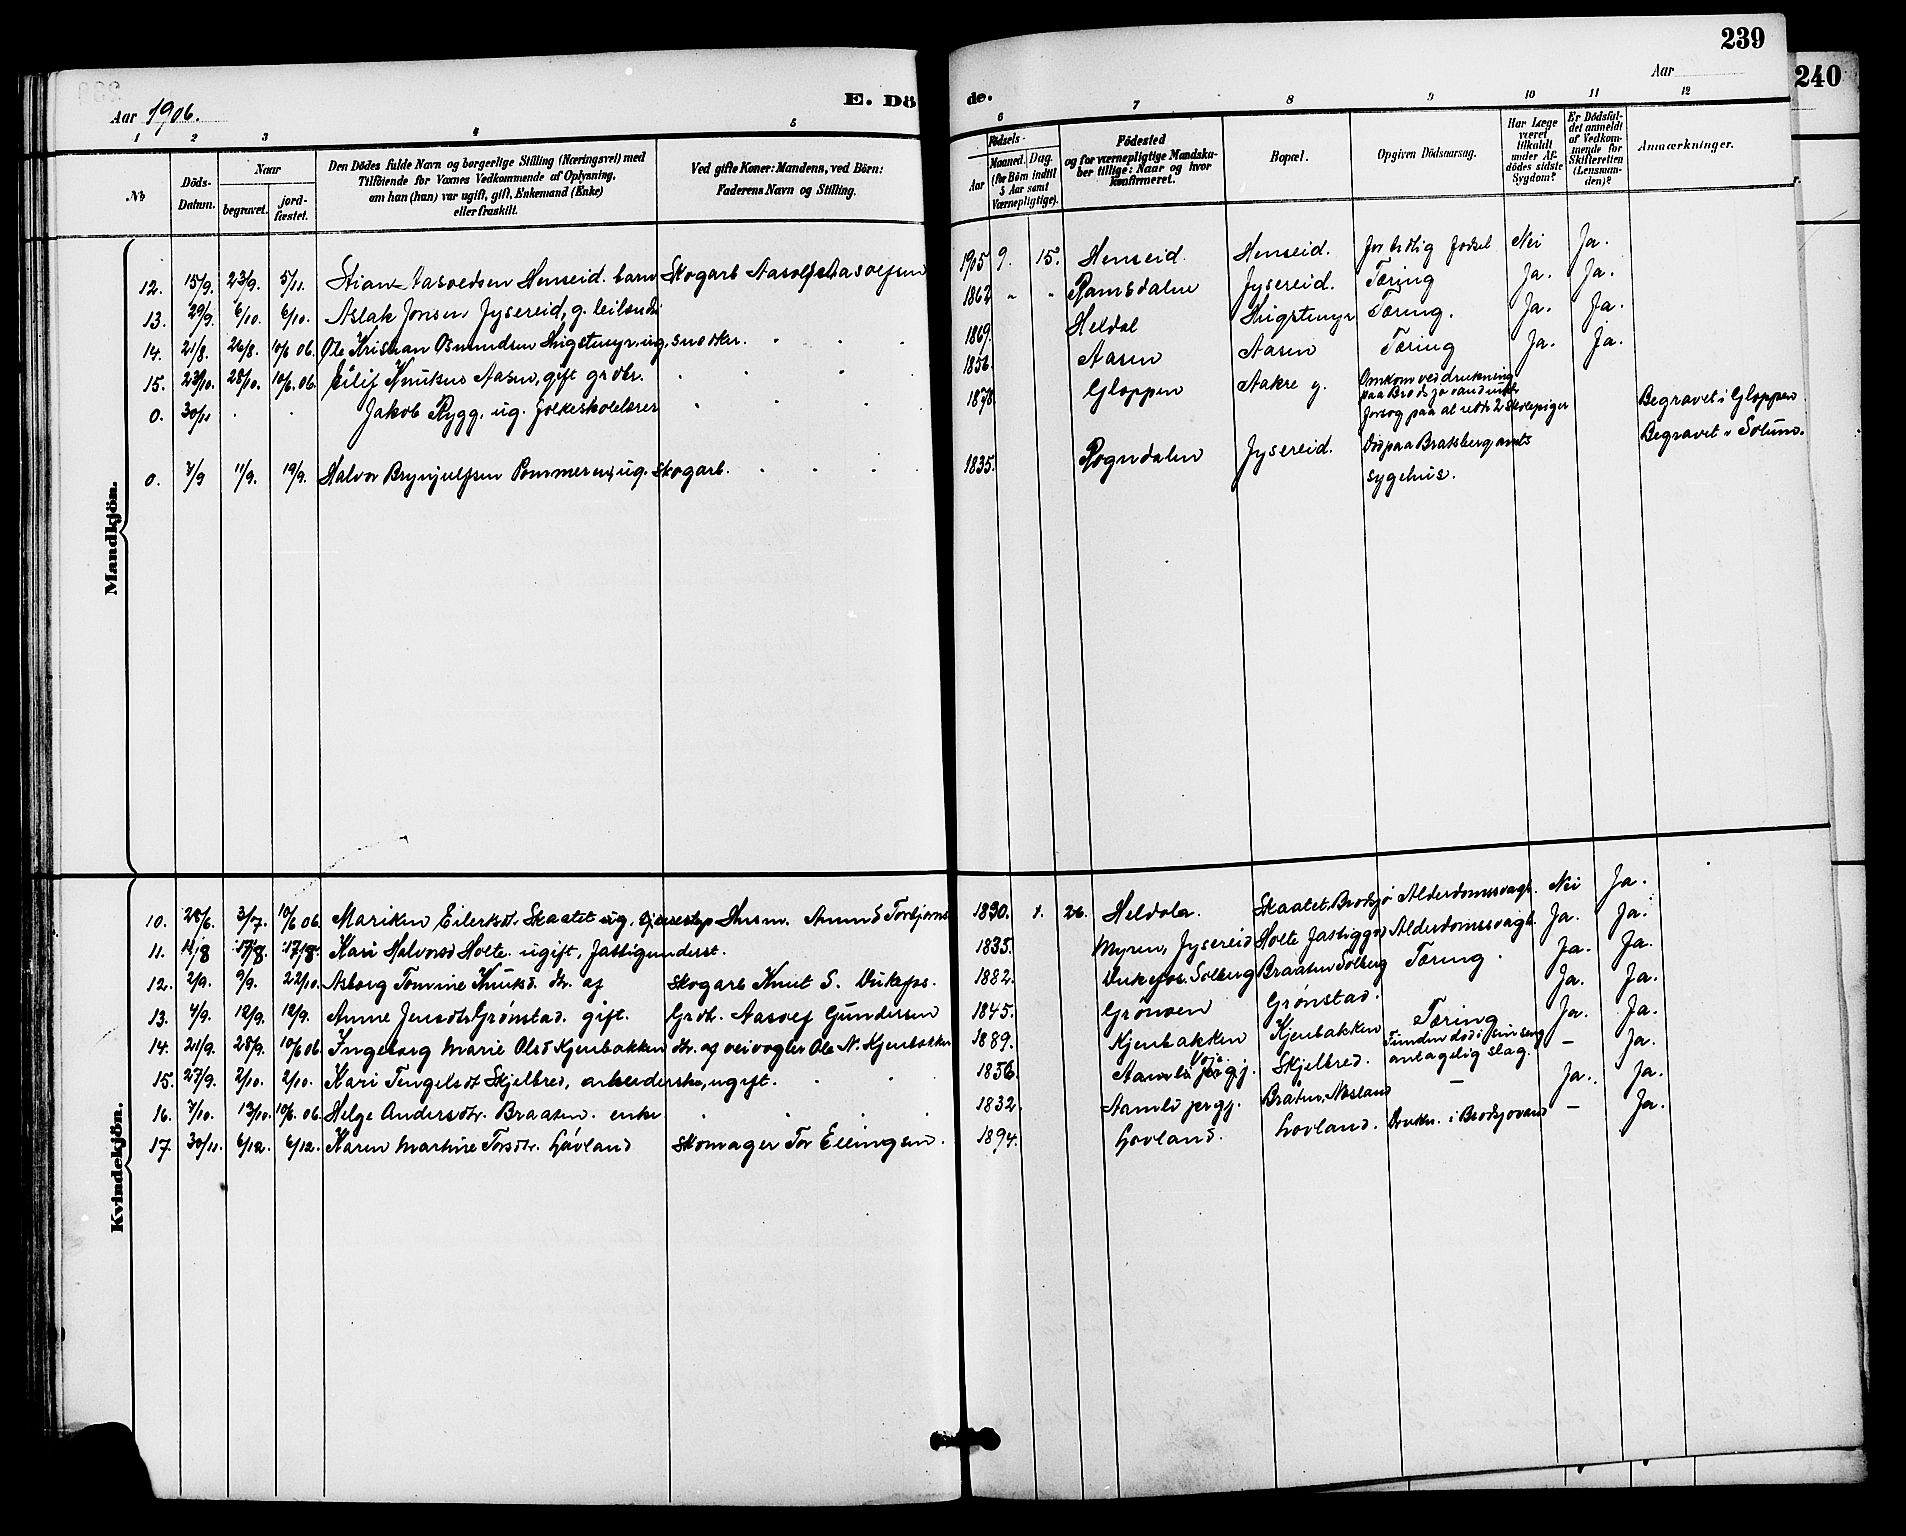 239
240
Aar 1906.
E. Dö
de.
Aar
1 2 3 4 5 6 7 8 9 10 11 12
No
Döds-Datum.
Naar
begravet.
jord-fæstet.
Den Dödes fulde Navn og borgerlige Stilling (Næringsvei) med
Tilföiende for Voxnes Vedkommende af Oplysning,
om han (hun) var ugift, gift, Enkemand (Enke)
eller fraskilt.
Ved gifte Koner: Mandens, ved Börn:
Faderens Navn og Stilling.
Födsels-
Aar
Maaned. Dag.
(for Börn indtil
5 Aar samt
Værnepligtige).
Födested
og for værnepligtige Mandska-
ber tillige: Naar og hvor
konfirmeret.
Bopæl.
Opgiven Dödsaarsag.
Har Læge
været
tilkaldt
under Af-
dödes sidste
Sygdom?
Er Dödsfal-
det anmeldt
af Vedkom-
mende for
Skifteretten
(Lensman-
den)?
Anmærkninger.
Mandkjön.
12. 15/9. 23/9. 5/11. Stian Aasvedsen Henseid. barn Skogarb Aasolf Aasolfsen 1905 9. 15. Henseid. Henseid. for tidlig fødsel Nei Ja.
13. 29/9. 6/10. 6/10. Aslak Jonsen Jysereid, g. leilænd 1862 " " Ramsdalen Jysereid. Tæring Ja. Ja.
14. 21/8. 26/8. 10/6 06. Ole Kristian Osmundsen ug. snedker. 1869. Heldal Tæring. Ja. Ja.
15. 23/10. 28/10. 10/6. 06. Eilif Knutsen Aasen, gift grdbr. 1856. Aasen Aasen Tæring Ja. Ja.
0. 30/11 . . Jakob Rygg, ug. folkeskolelærer 1878 Gloppen Aakre g. Omkom ved drukning
paa Brødsjøvand under
forsøg paa at redde 2 skolepiger Begravet i Gloppen
0. 7/9 11/9. 19/9. Halvor Brynjulfsen Pommeren, ug. skogarb. 1835. Rogndalen Jysereid. Død paa Bratsberg amts
sygehus. Begravet i Solum.
Kvindekjön.
10. 28/6. 3/7. 10/6 06. Mariken Eilertsdt. Skaatet ug. Husm. Anund Torbjørns 1830. 1. 26. Heldola Skaatet, Brødsjø Alderdomssvagh. Nei Ja.
11. 11/8 17/8. 17/8. Kari Halvorsd Holte. ugift, fattigunderst. 1835. Myren, Jysereid Holte fatbiggd Alderdomssvagh. Ja. Ja.
12. 2/9. 9/9. 22/10. Asborg Tomine Knutsd. dr. af Skogarb Knut S. Dukefos. 1882. Dukefos. Solberg Braaten Solberg Tæring. Ja. Ja.
13. 4/9. 12/9. 12/9. Anne Jensdtr Grønstad. gift. Grdbr. Aasolf Gundersen 1845. Grønven Grønstad. Ja. Ja.
14. 21/9. 28/9. 10/6 06 Ingeborg Marie Olsd Kjenbakken dr. af veivogter Ole N. Kjenbakken 1889. Kjenbakken Kjenbakken Tæring Ja. Ja.
15. 27/9. 2/10. 2/10. Kari Tengelsdt Skjelbred, arbeiderske, ugift. 1856. Aamli prgj. Skjelbred. Funden død i sin seng
antagelig slag. – Ja.
16. 7/10. 13/10. 10/6. 06 Helge Andersdtr. Braaten. enke 1832. Aamli prgj. Braten, Næsland – Ja. Ja.
17. 30/11. 6/12. 6/12. Karen Martine Torsdtr. Lövland Skomager Tor Ellingsen. 1894. Lovland. Lovland. Drukn. i Brødsjøvand – Ja.